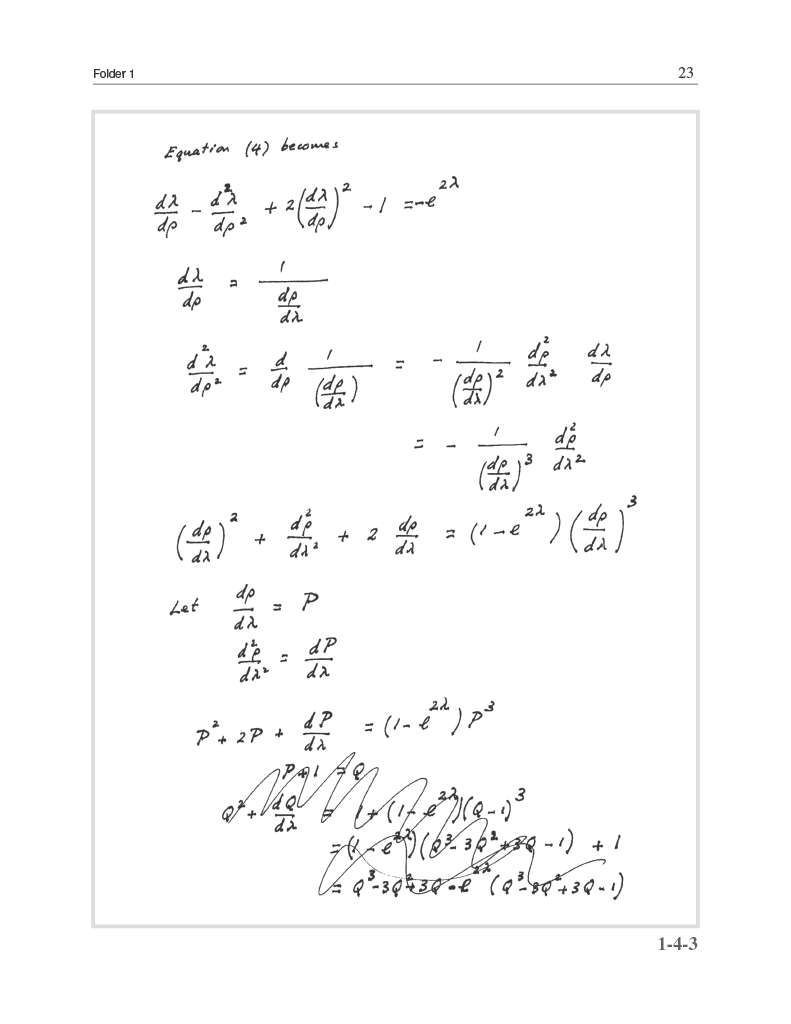 Folder 1 23
Equation (4) becomes
dλ/dρ - d²λ/dρ² + 2(dλ/dρ)² - 1 = -e^2λ
dλ/dρ = 1/(dρ/dλ)
d²λ/dρ² = d/dρ 1/(dρ/dλ) = - 1/(dρ/dλ)² d²ρ/dλ² dλ/dρ
= - 1/(dρ/dλ)³ d²ρ/dλ²
(dρ/dλ)² + d²ρ/dλ² + 2 dρ/dλ = (1-e^2λ)(dρ/dλ)³
Let dρ/dλ = P
d²ρ/dλ² = dP/dλ
P² + 2P + dP/dλ = (1-e^2λ)P³
P+1 = Q
Q² + dQ/dλ = 1+(1-e^2λ)(Q-1)³
= (1-e^2λ)(Q³-3Q²+3Q-1) + 1
= Q³-3Q²+3Q-e^2λ (Q³-3Q²+3Q-1)
1-4-3